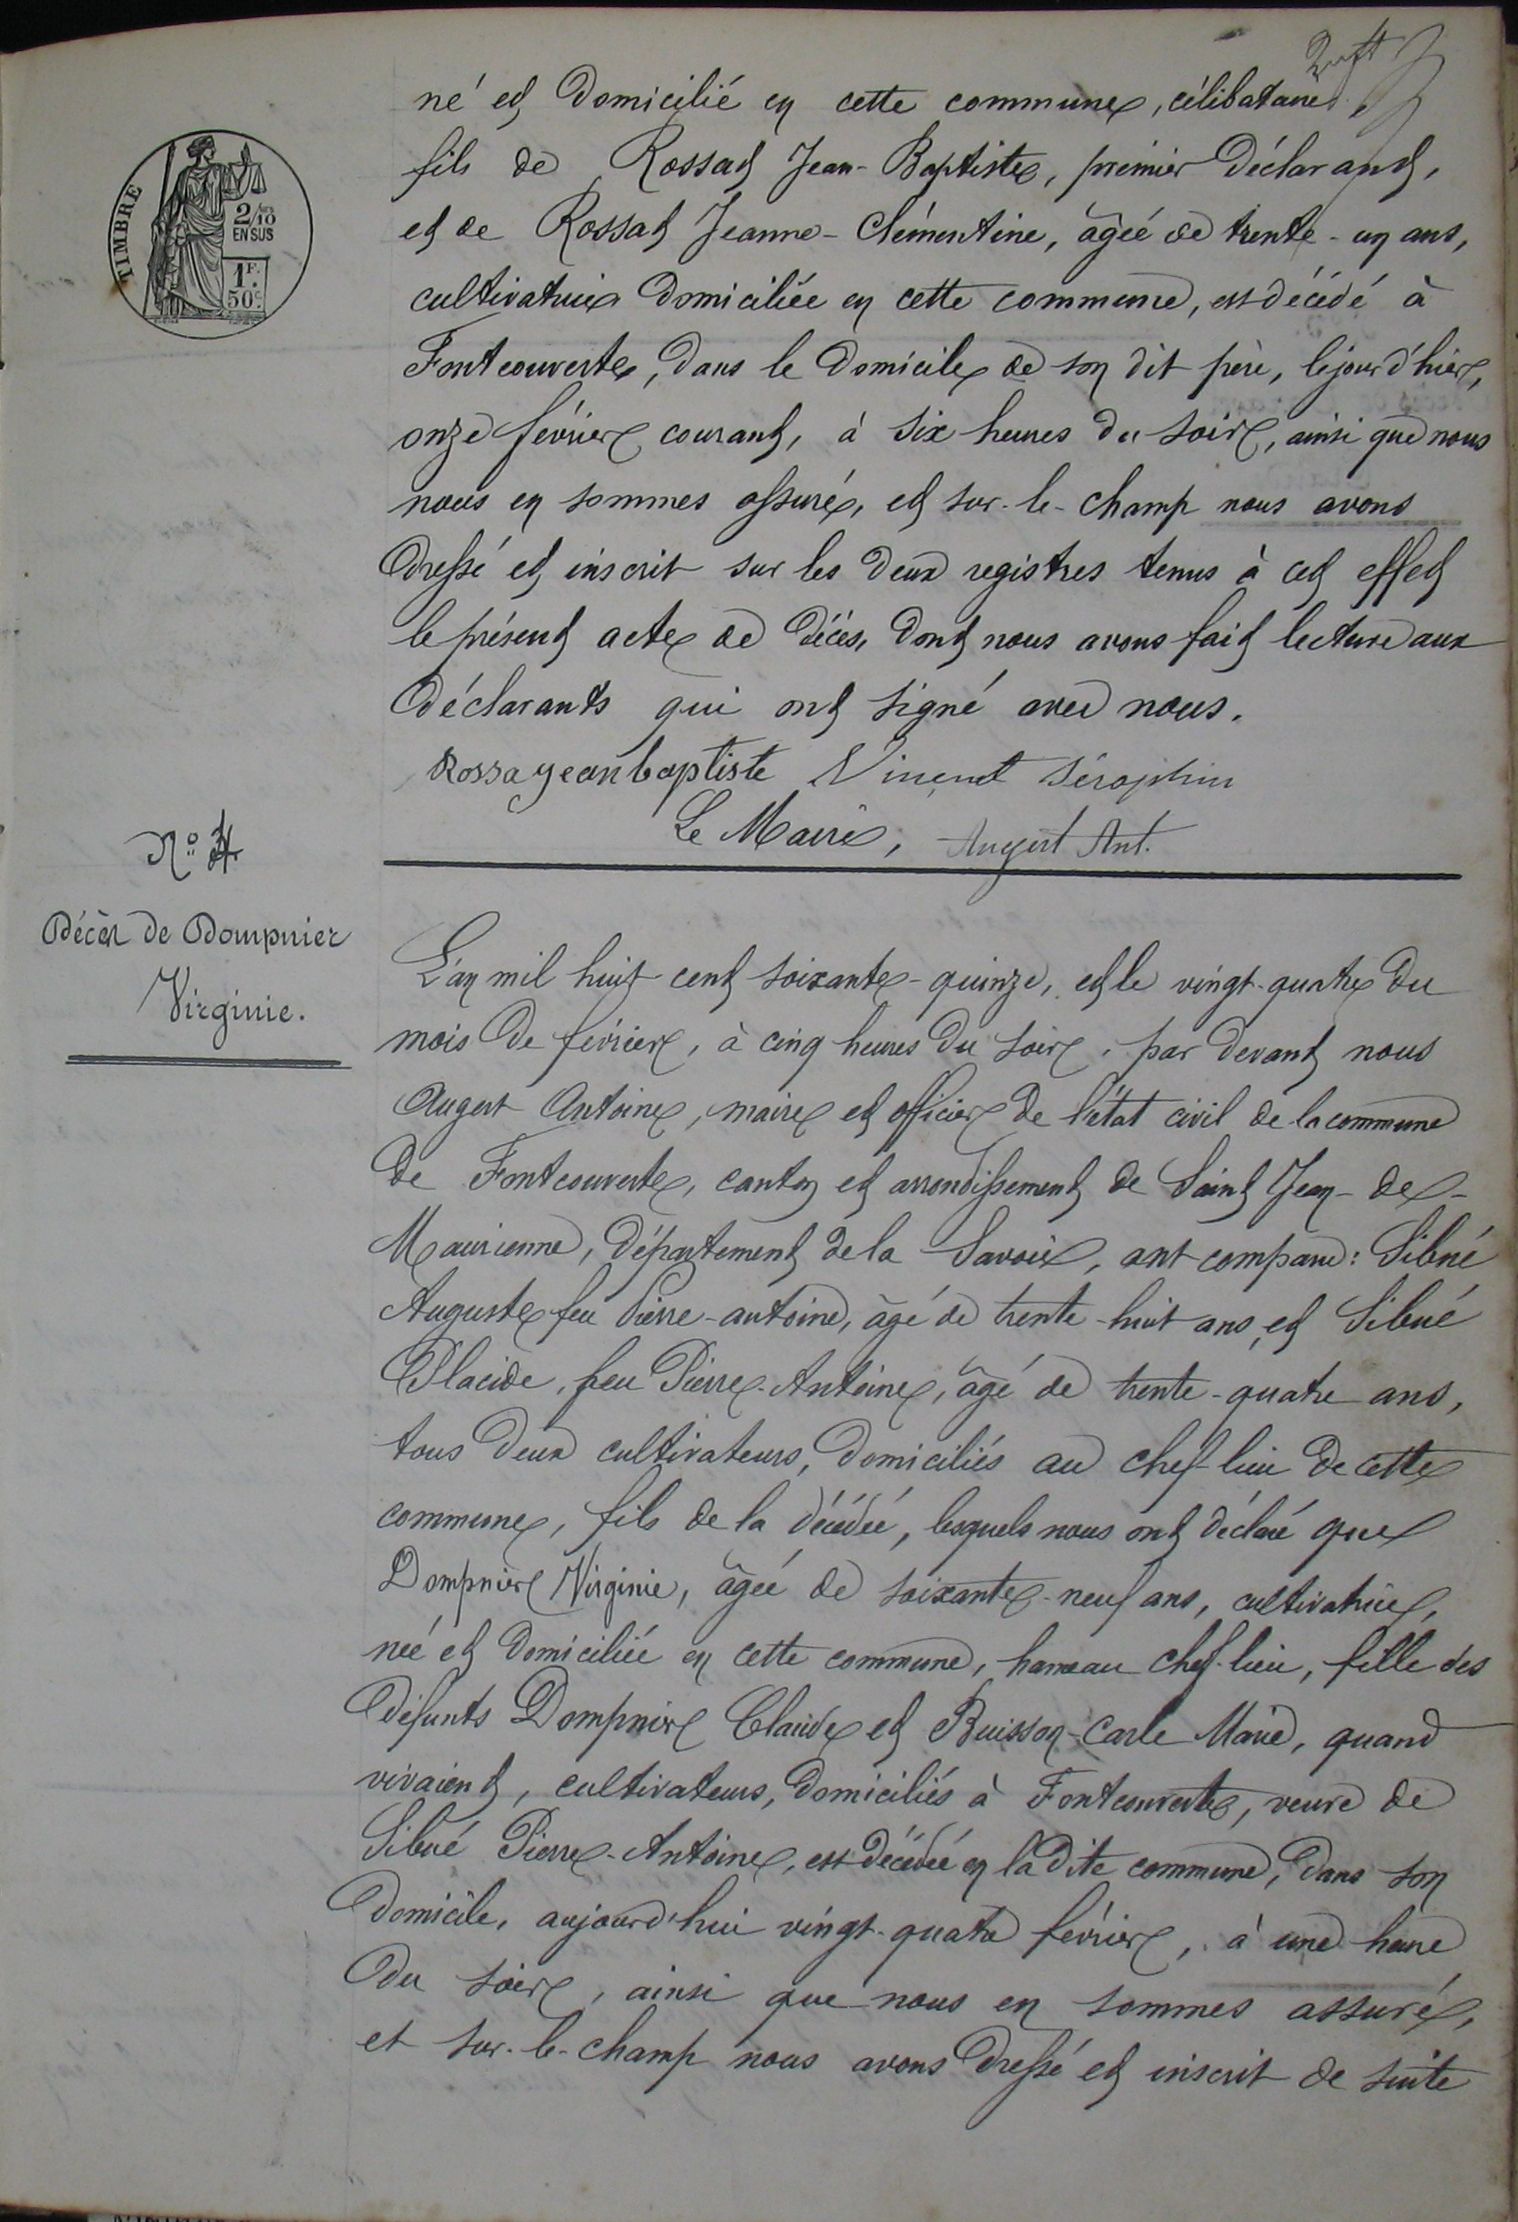 TIMBRE
2/10
EN SUS
1F.
50c
né et domicilié en cette commune, célibataire,
fils de Rossat Jean-Baptiste, premier déclarant,
et de Rossat Jeanne-Clémentine, âgée de trente-un ans,
cultivatrice domiciliée en cette commune, est décédé à
Fontcouverte, dans le domicile de son dit père, le jour d'hier,
onze février courant, à six heures du soir, ainsi que nous
nous en sommes assuré, et sur-le-champ nous avons
dressé et inscrit sur les deux registres tenus à cet effet
le présent acte de décès, dont nous avons fait lecture aux
déclarants qui ont signé avec nous.
Rossa jean baptiste Vincent Séraphin
Le Maire, Augert Ant.
No 4
Décès de Dompnier
Virginie.
L'an mil huit cent soixante-quinze, et le vingt-quatre du
mois de février, à cinq heures du soir, par devant nous
Augert Antoine, maire et officier de l'état civil de la commune
de Fontcouverte, canton et arrondissement de Saint Jean-de-
Maurienne, département de la Savoie, ont comparu: Sibué
Auguste feu Pierre-antoine, âgé de trente-huit ans, et Sibué
Placide, feu Pierre-Antoine, âgé de trente-quatre ans,
tous deux cultivateurs, domiciliés au chef-lieu de cette
commune, fils de la décédée, lesquels nous ont déclaré que
Dompnier Virginie, âgée de soixante-neuf ans, cultivatrice,
née et domiciliée en cette commune, hameau chef-lieu, fille des
défunts Dompnier Claude et Buisson-Carle Marie, quand
vivaient, cultivateurs, domiciliés à Fontcouverte, veuve de
Sibué Pierre-Antoine, est décédée en la dite commune, dans son
domicile, aujourd'hui vingt-quatre février, à une heure
du soir, ainsi que nous en sommes assuré,
et sur-le-champ nous avons dressé et inscrit de suite